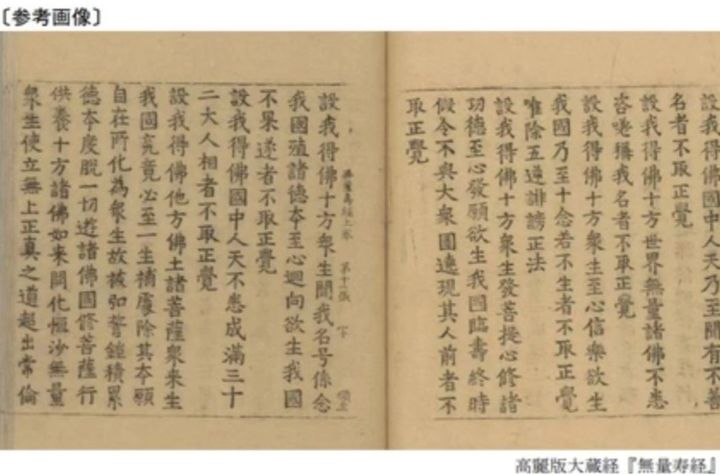 〔参考画像〕
設我得佛國中人天乃至聞有不善
名者不取正覺
設我得佛十方世界無量諸佛不悉
咨嗟稱我名者不取正覺
設我得佛十方衆生至心信樂欲生
我國乃至十念若不生者不取正覺
唯除五逆誹謗正法
設我得佛十方衆生發菩提心修諸
功德至心發願欲生我國臨壽終時
假令不與大衆圍遶現其人前者不
取正覺
無量壽經上卷 第十二張 下
設我得佛十方衆生聞我名号係念
我國殖諸德本至心迴向欲生我國
不果遂者不取正覺
設我得佛國中人天不悉成滿三十
二大人相者不取正覺
設我得佛他方佛土諸菩薩衆来生
我國究竟必至一生補處除其本願
自在所化為衆生故被弘誓鎧積累
德本度脫一切遊諸佛國修菩薩行
供養十方諸佛如来開化恒沙無量
衆生使立無上正真之道超出常倫
高麗版大蔵経『無量寿経』